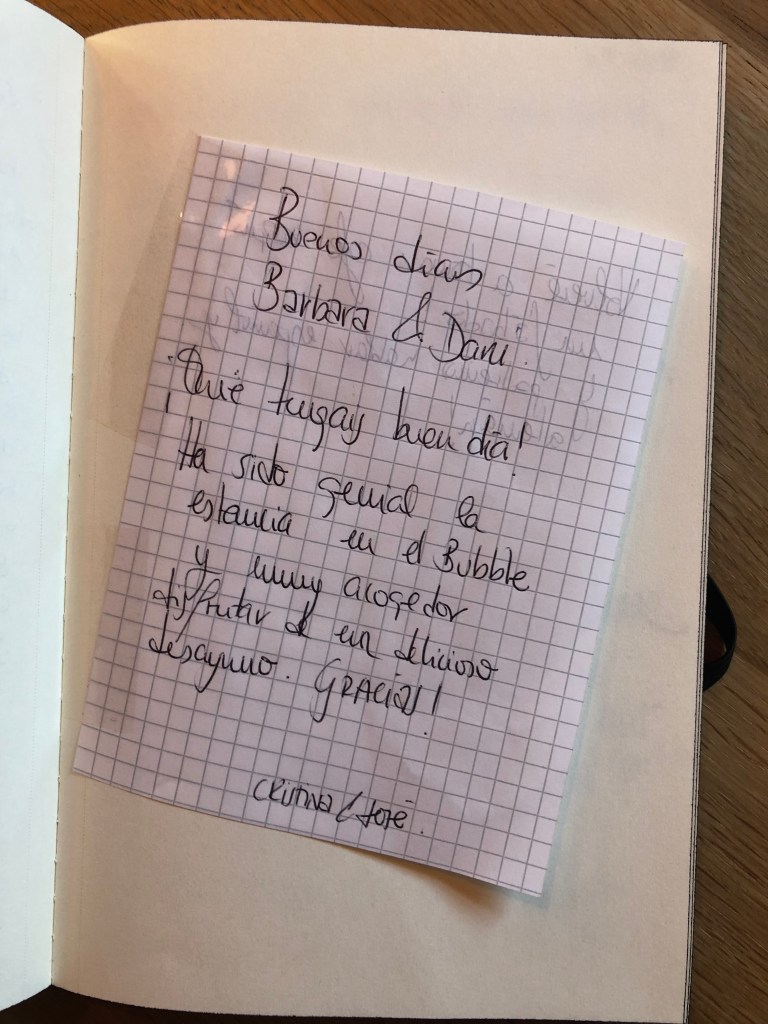 Buenos dias
Barbara & Dani.
¡Qué tengáis buen día!
Ha sido genial la
estancia en el Bubble
y muy acogedor
disfrutar de un delicioso
desayuno. GRACIAS!
CRISTINA & José.